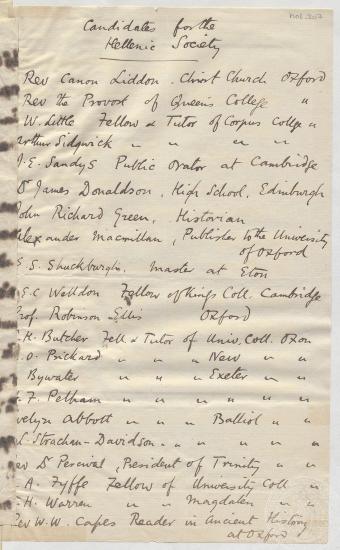 Hel. 207
Candidates for the
Hellenic Society
Rev Canon Liddon. Christ Church Oxford
Rev the Provost of Queens College "
W. Little Fellow & Tutor of Corpus College "
Arthur Sidgwick " " " "
J.E. Sandys Public Orator at Cambridge
Dr James Donaldson, High School, Edinburgh
John Richard Green, Historian
Alexander Macmillan, Publisher to the University
of Oxford
E S. Shuckburgh, Master at Eton
E.C Welldon Fellow of Kings Coll. Cambridge
Prof. Robinson Ellis Oxford
H. Butcher Fell & Tutor of Univ. Coll. Oxon
O. Prickard " " " New " "
Bywater " " " Exeter " "
F. Pelham " " " " " "
Evelyn Abbott " " Balliol " "
L. Strachan-Davidson " " " " "
Rev Dr Percival, President of Trinity " "
A. Fyffe Fellow of University Coll "
H. Warren " " Magdalen " "
Rev W.W. Capes Reader in Ancient History
at Oxford